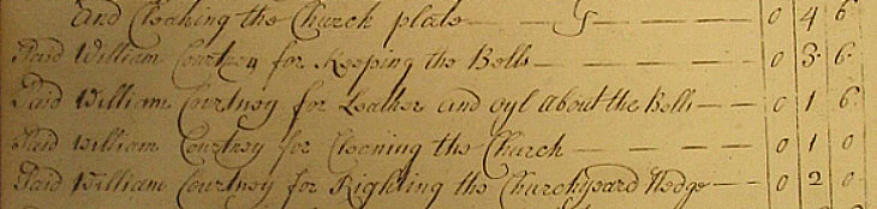 and Cleaning the Church plate — — — — 0 4 6
Paid William Courtney for Keeping the Bells — — — — 0 3 6
Paid William Courtney for Leather and oyl about the Bells — — 0 1 6
Paid william Courtney for Cleaning the Church — — — — 0 1 0
Paid William Courtney for Righting the Churchyeard Hedge — — 0 2 0